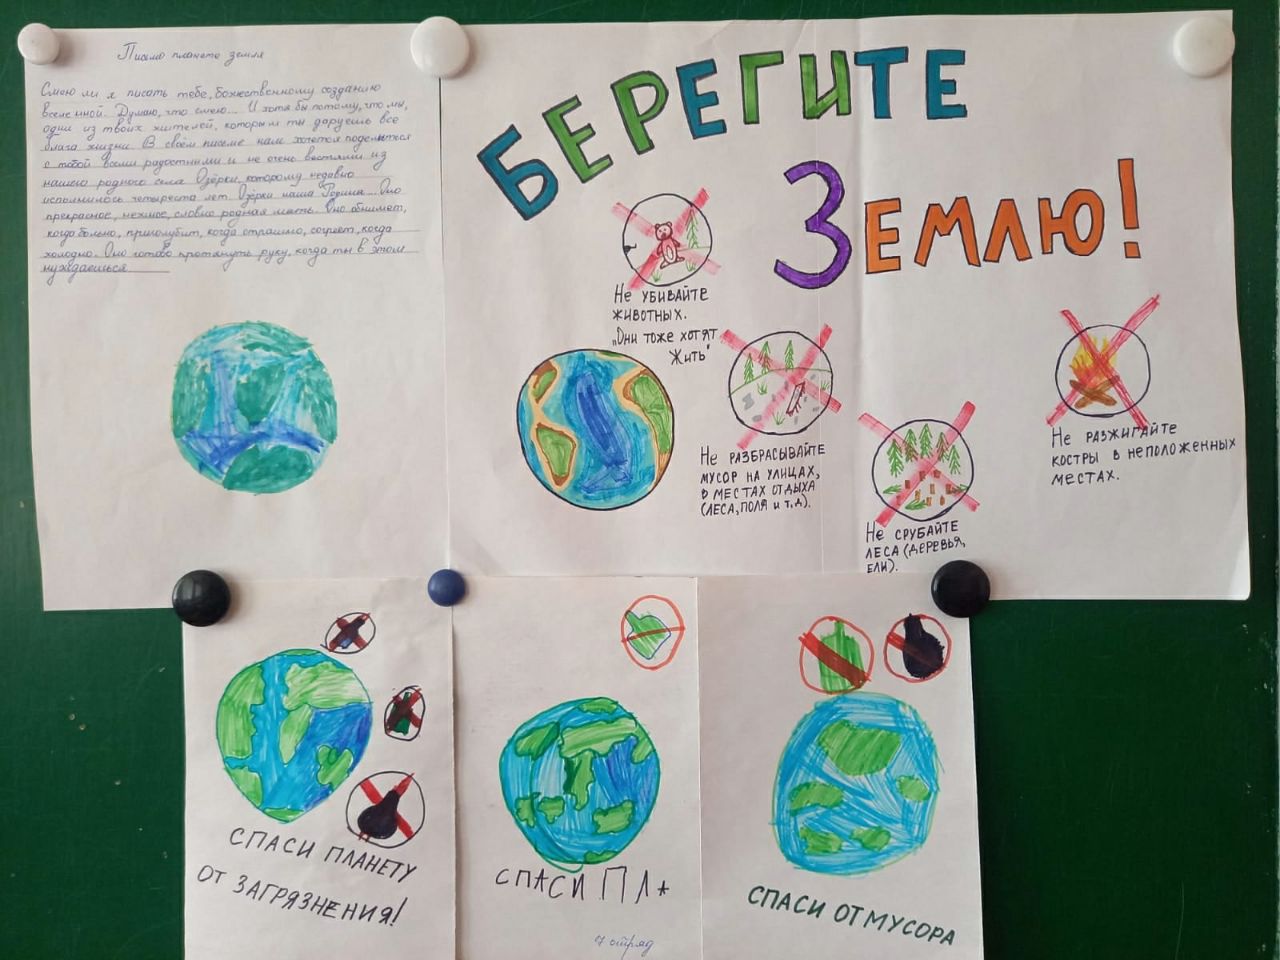 Письмо планете земля
Смею ли я писать тебе, божественному созданию
вселенной. Думаю, что смею... И хотя бы потому, что мы,
одни из твоих жителей, которым ты даруешь все
блага жизни. В своём письме нам хочется поделиться
с тобой всеми радостными и не очень вестями из
нашего родного села Озёрки, которому недавно
исполнилось четыреста лет. Озёрки наша Родина... Оно
прекрасное, нежное, словно родная мать. Оно обнимет,
когда больно, приголубит, когда страшно, согреет, когда
холодно. Оно готово протянуть руку, когда ты в этом
нуждаешься
БЕРЕГИТЕ
ЗЕМЛЮ!
Не УБИВАЙТЕ
ЖИВОТНЫХ.
„Они тоже хотят
Жить"
Не РАЗБРАСЫВАЙТЕ
МУСОР НА УЛИЦАХ,
В МЕСТАХ ОТДЫХА
(ЛЕСА, ПОЛЯ И Т.Д).
Не СРУБАЙТЕ
ЛЕСА (ДЕРЕВЬЯ,
ЕЛИ).
Не РАЗЖИГАЙТЕ
КОСТРЫ В НЕПОЛОЖЕННЫХ
МЕСТАХ.
СПАСИ ПЛАНЕТУ
ОТ ЗАГРЯЗНЕНИЯ!
СПАСИ ПЛА
7 отряд
СПАСИ ОТ МУСОРА